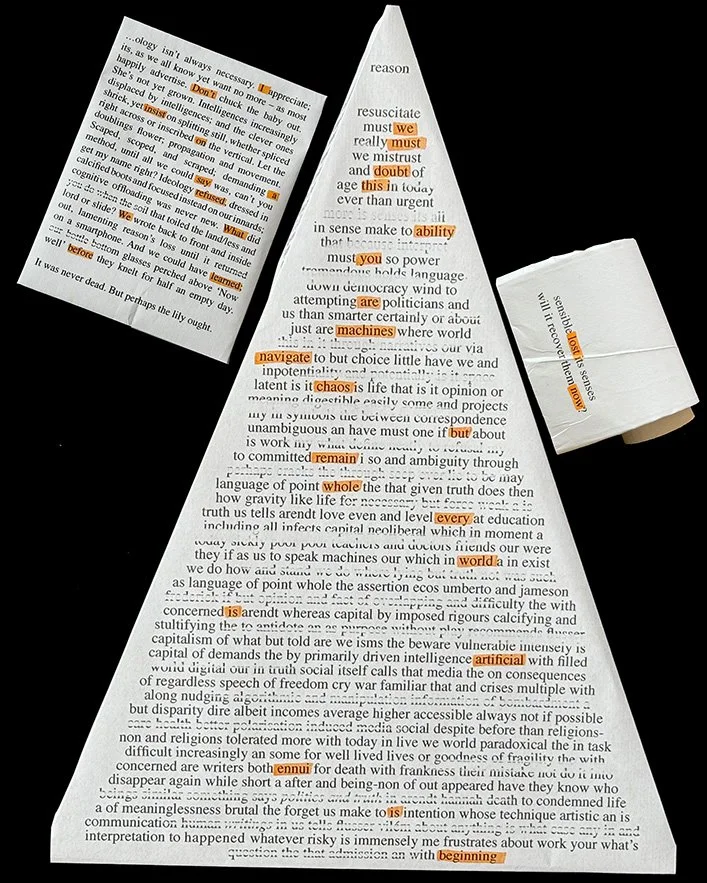 ...ology isn't always necessary. I appreciate:
its, as we all know yet want no more – as most
happily advertise. Don't chuck the baby out.
She's not yet grown. Intelligences increasingly
displaced by intelligences; and the clever ones
shriek, yet insist on splitting still, whether spliced
right across or inscribed on the vertical. Let the
doublings flower; propagation and movement.
Scaped, scoped, and scraped, demanding a
method, until all we could say was, can't you
get my name right? Ideology refused, dressed in
calcified boots and focused instead on our innards;
cognitive offloading was never new. What did
you do when the soil that toiled the land/less and
lord or slide? We wrote back to front and inside
out, lamenting reason's loss until it returned
on a smartphone. And we could have learned;
bottle bottom glasses perched above 'Now
well' before they knelt for half an empty day.
It was never dead. But perhaps the lily ought.
reason
resuscitate
must we
really must
we mistrust
and doubt of
age this in today
ever than urgent
more is senses its all
in sense make to ability
that because interpret
must you so power
tremendous holds language
down democracy wind to
attempting are politicians and
us than smarter certainly or about
just are machines where world
this in it through narratives our via
navigate to but choice little have we and
inpotentiality and potentiality is it
latent is it chaos is life that is it opinion or
meaning digestible easily some and projects
my in symbols the between correspondence
unambiguous an have must one if but about
is work my what define neatly to refusal my
to committed remain i so and ambiguity through
perhaps the through lie to be may
language of point whole the that given truth does then
how gravity like life for necessary but force weak a is
truth us tells arendt love even and level every at education
including all infects capital neoliberal which in moment a
today sickly poor poor teachers and doctors friends our were
they if as us to speak machines our which in world a in exist
we do how and stand we do where lying but truth not was such
as language of point whole the assertion ecos umberto and jameson
frederick if but opinion and fact of overlapping and difficulty the with
concerned is arendt whereas capital by imposed rigours calcifying and
stultifying the to antidote an as purpose without play recommends flusser
capitalism of what but told are we isms the beware vulnerable intensely is
capital of demands the by primarily driven intelligence artificial with filled
world digital our in truth social itself calls that media the on consequences
of regardless speech of freedom cry war familiar that and crises multiple with
along nudging algorithmic and manipulation information of bombardment a
but disparity dire albeit incomes average higher accessible always not if possible
care health better polarisation induced media social despite before than religions-
non and religions tolerated more with today in live we world paradoxical the in task
difficult increasingly an some for well lived lives or goodness of fragility the with
concerned are writers both ennui for death with frankness their mistake not do it into
disappear again while short a after and being-non of out appeared have they know who
beings similar something says politics and truth in arendt hannah death to condemned life
a of meaninglessness brutal the forget us make to is intention whose technique artistic an is
communication human writings in us tells flusser vilém about anything is what case any in and
interpretation to happened whatever risky is immensely me frustrates about work your what's
question the that admission an with beginning
sensible lost its senses
will it recover them now?